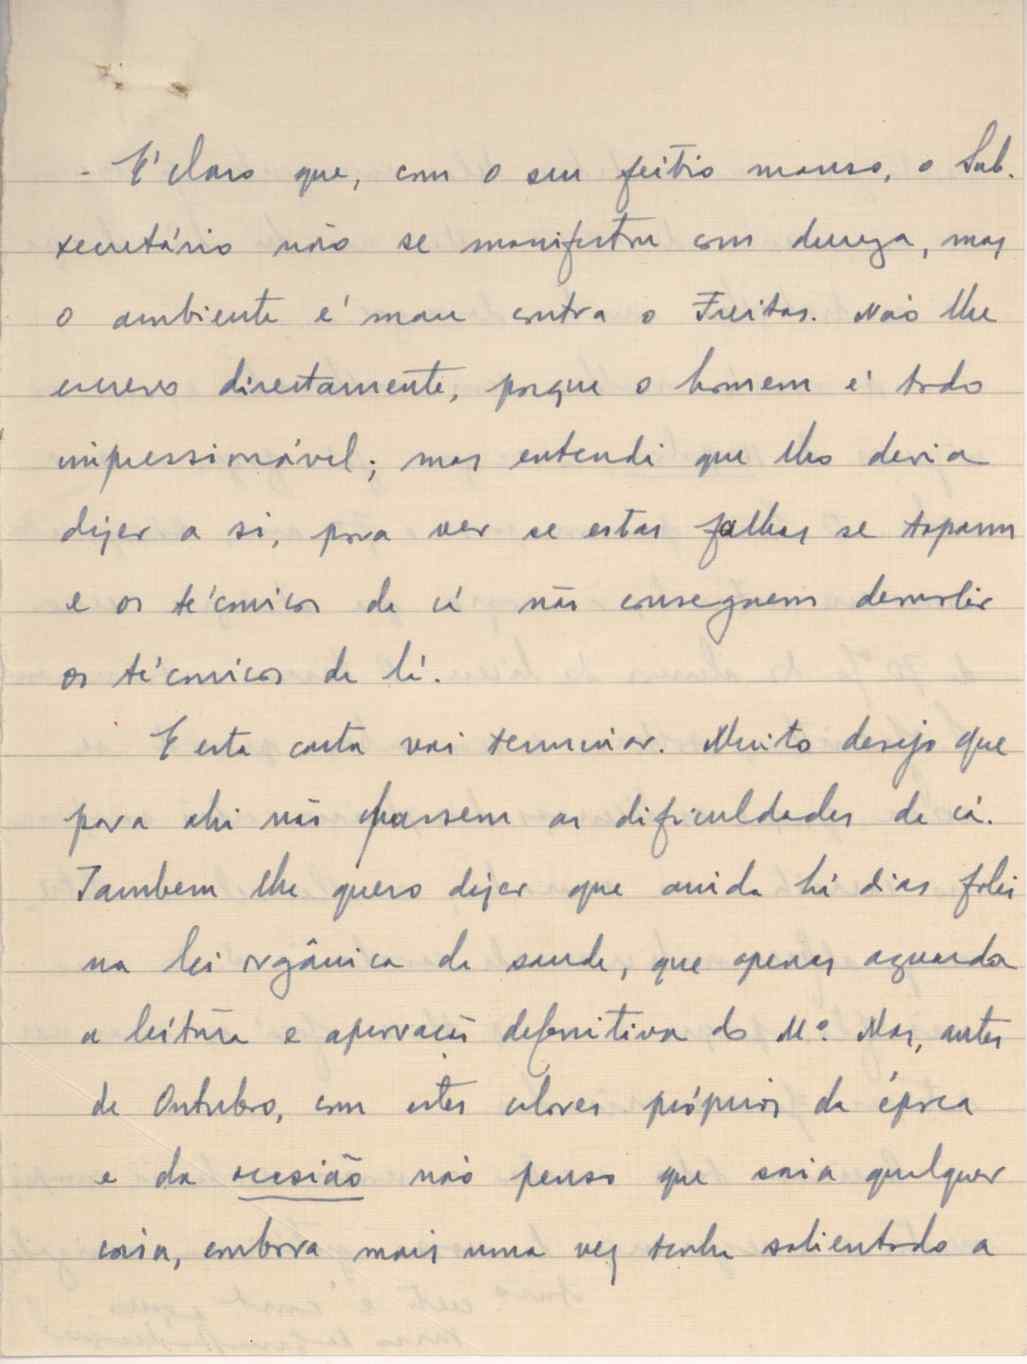 - É claro que, com o seu feitio manso, o Sub.
secretário não se manifestou com dureza, mas
o ambiente é mau contra o Freitas. Não lhe
escrevo directamente, porque o homem é todo
impressionável; mas entendi que lho devia
dizer a si, para ver se estas falhas se tapam
e os técnicos de cá não conseguem demolir
os técnicos de lá.
E esta carta vai terminar. Muito desejo que
para ahi não passem as dificuldades de cá.
Tambem lhe quero dizer que ainda há dias falei
na lei orgânica da saude, que apenas aguarda
a leitura e aprovação definitiva do Mº. Mas, antes
de Outubro, com estes calores próprios da época
e da ocasião não penso que saia qualquer
coisa, embora mais uma vez tenha salientado a